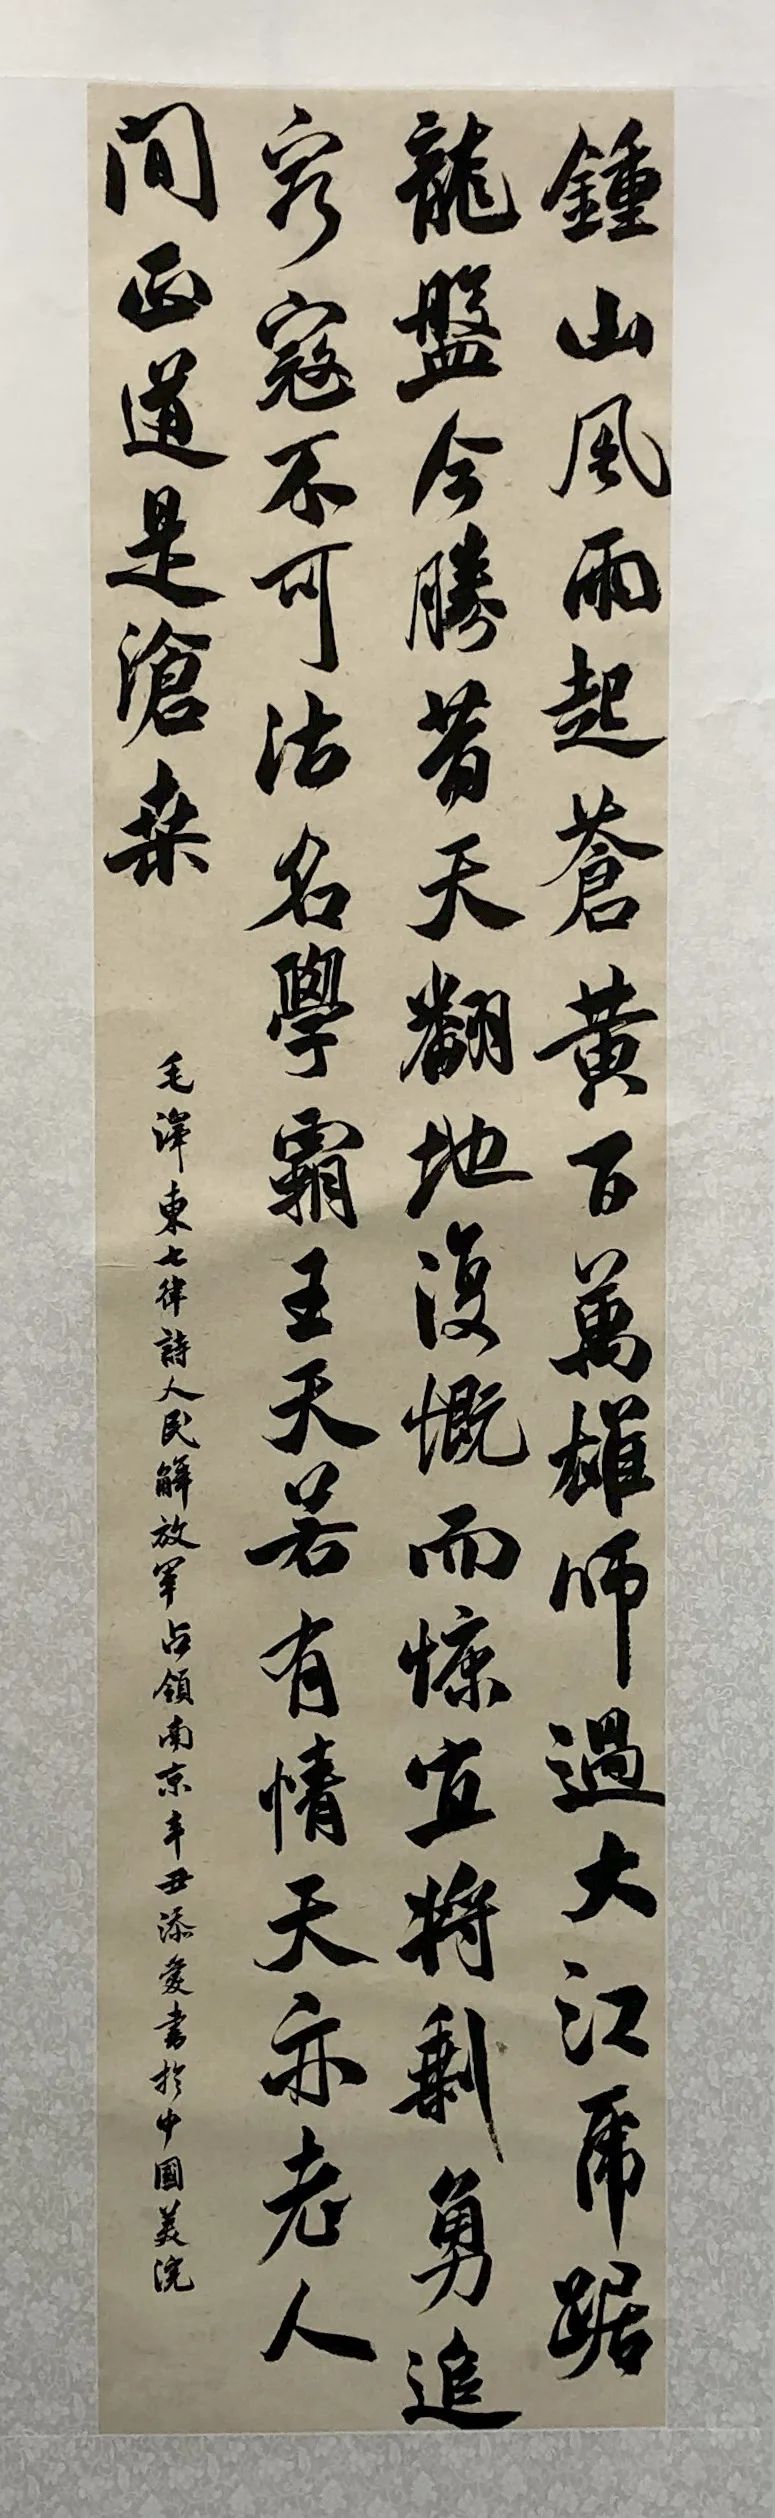 鍾山風雨起蒼黃百萬雄師過大江虎踞
龍盤今勝昔天翻地復慨而慷宜將剩勇追
窮寇不可沽名學霸王天若有情天亦老人
間正道是滄桑
毛澤東七律詩人民解放軍占領南京辛丑添愛書於中國美院